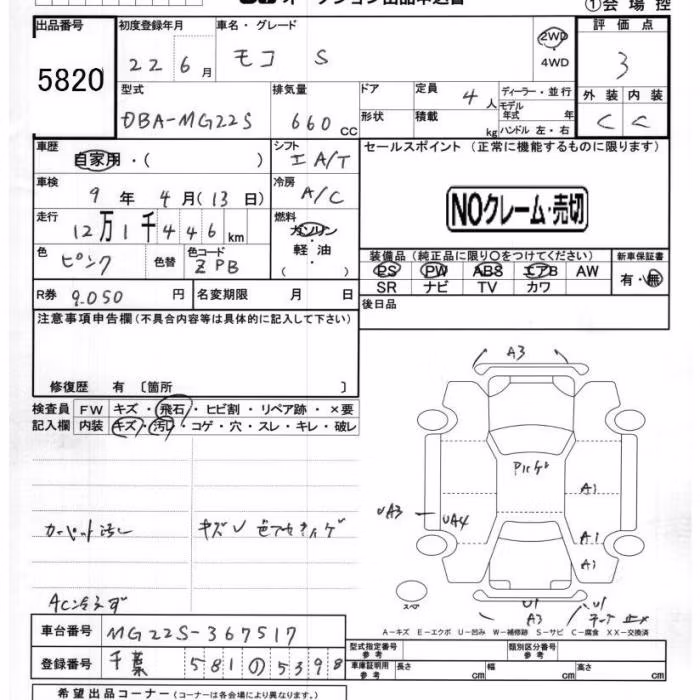 ①会場控
出品番号 初度登録年月 車名・グレード 評価点
5820 22 6月 モコ S 2WD 4WD 3
型式 排気量 ドア 定員 4人 ディーラー・並行 外装 内装
DBA-MG22S 660cc 形状 積載 kg モデル年式 年 ハンドル 左・右 C C
車歴 自家用・( ) シフト I A/T セールスポイント (正常に機能するものに限ります)
車検 9年 4月(13日) 冷房 A/C
NOクレーム・売切
走行 12万1千446km 燃料 ガソリン 軽油 ( )
色 ピンク 色替 色コード ZPB 装備品 (純正品に限り○をつけてください) 新車保証書
PS PW ABS エアB AW 有・無
SR ナビ TV カワ
R券 9.050円 名変期限 月 日 後日品
注意事項申告欄 (不具合内容等は具体的に記入して下さい)
修復歴 有 〔箇所 〕
検査員 FW キズ・飛石・ヒビ割・リペア跡・×要
記入欄 内装 キズ・汚レ・コゲ・穴・スレ・キレ・破レ
A3
A1
UA3 UA4
A1
A1
カーペット汚レ
AC冷えず
スペア U1 A3 U1
A-キズ E-エクボ U-凹み W-補修跡 S-サビ C-腐食 XX-交換済
車台番号 MG22S-367517
登録番号 千葉 581 の 5398
型式指定番号 類別区分番号
車庫証明用参考 長さ cm 幅 cm 高さ cm
希望出品コーナー (コーナーは各会場により異なります。) 参考 参考